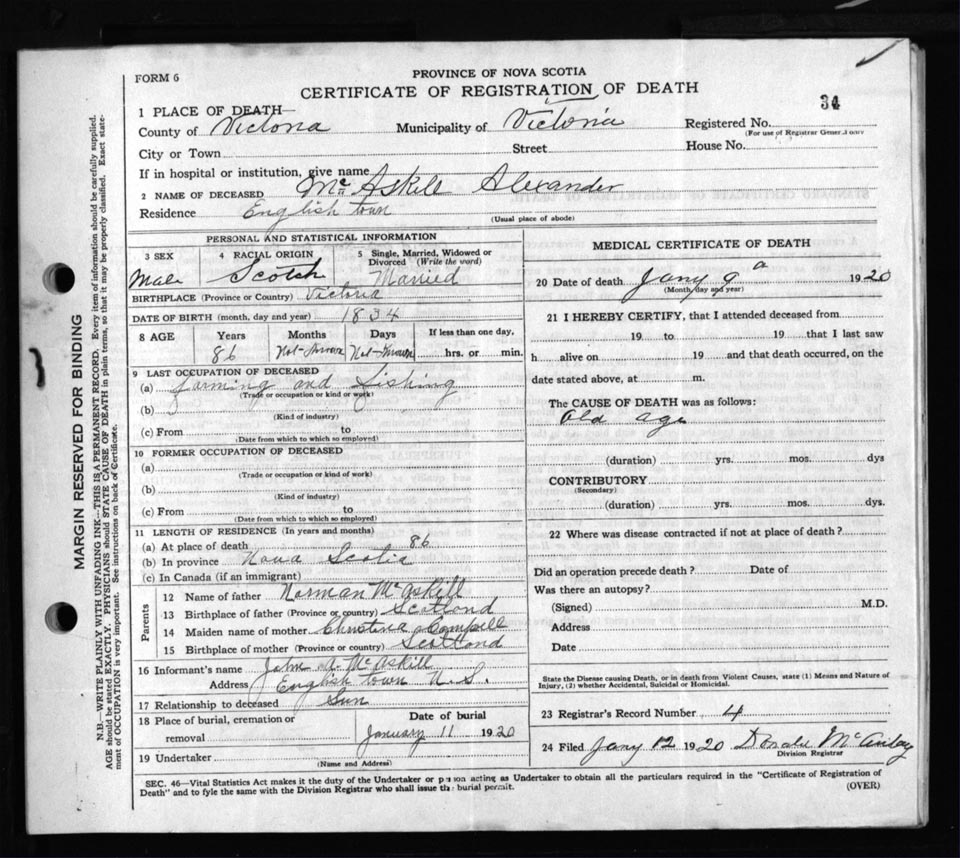 FORM 6
PROVINCE OF NOVA SCOTIA
CERTIFICATE OF REGISTRATION OF DEATH
34
1 PLACE OF DEATH—
County of Victoria Municipality of Victoria Registered No.
(For use of Registrar General only)
City or Town Street House No.
If in hospital or institution, give name
2 NAME OF DECEASED McAskill Alexander
Residence English town
(Usual place of abode)
PERSONAL AND STATISTICAL INFORMATION
3 SEX 4 RACIAL ORIGIN 5 Single, Married, Widowed or Divorced (Write the word)
Male Scotch Married
BIRTHPLACE (Province or Country) Victoria
DATE OF BIRTH (month, day and year) 1834
8 AGE Years Months Days If less than one day,
86 Not-Known Not-Known hrs. or min.
9 LAST OCCUPATION OF DECEASED
(a) farming and Fishing
(Trade or occupation or kind or work)
(b)
(Kind of industry)
(c) From to
(Date from which to which so employed)
10 FORMER OCCUPATION OF DECEASED
(a)
(Trade or occupation or kind of work)
(b)
(Kind of industry)
(c) From to
(Date from which to which so employed)
11 LENGTH OF RESIDENCE (In years and months)
(a) At place of death 86
(b) In province Nova Scotia
(c) In Canada (if an immigrant)
Parents
12 Name of father Norman McAskill
13 Birthplace of father (Province or country) Scotlond
14 Maiden name of mother Christena Compell
15 Birthplace of mother (Province or country) Scotlond
16 Informant's name John A. McAskill
Address English town N.S.
17 Relationship to deceased Sun
18 Place of burial, cremation or Date of burial
removal January 11 1920
19 Undertaker
(Name and Address)
MEDICAL CERTIFICATE OF DEATH
20 Date of death Jany 9 1920
(Month, day and year)
21 I HEREBY CERTIFY, that I attended deceased from
19 to 19 that I last saw
h alive on 19 and that death occurred, on the
date stated above, at m.
The CAUSE OF DEATH was as follows:
Old age
(duration) yrs. mos. dys
CONTRIBUTORY
(Secondary)
(duration) yrs. mos. dys.
22 Where was disease contracted if not at place of death?
Did an operation precede death? Date of
Was there an autopsy?
(Signed) M.D.
Address
Date
State the Disease causing Death, or in death from Violent Causes, state (1) Means and Nature of
Injury, (2) whether Accidental, Suicidal or Homicidal.
23 Registrar's Record Number 4
24 Filed Jany 12 1920 Donald
Division Registrar
SEC. 46—Vital Statistics Act makes it the duty of the Undertaker or person acting as Undertaker to obtain all the particulars required in the "Certificate of Registration of
Death" and to fyle the same with the Division Registrar who shall issue the burial permit.
(OVER)
MARGIN RESERVED FOR BINDING
N.B.—WRITE PLAINLY WITH UNFADING INK—THIS IS A PERMANENT RECORD. Every item of information should be carefully supplied.
AGE should be stated EXACTLY. PHYSICIANS should STATE CAUSE OF DEATH in plain terms, so that it may be properly classified. Exact state-
ment of OCCUPATION is very important. See instructions on back of Certificate.